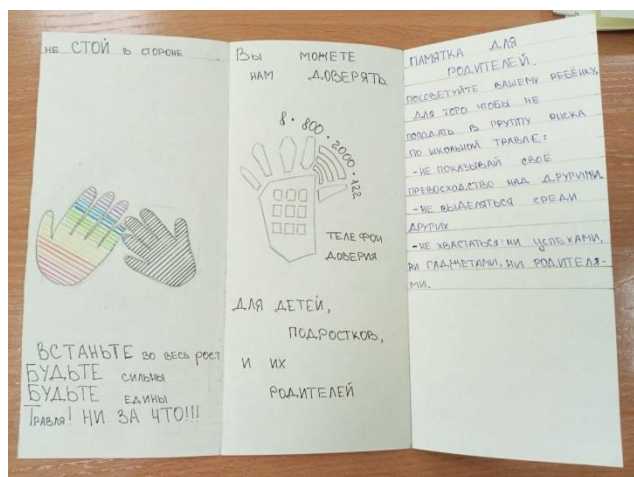 НЕ СТОЙ В СТОРОНЕ
ВСТАНЬТЕ ВО ВЕСЬ РОСТ
БУДЬТЕ СИЛЬНЫ
БУДЬТЕ ЕДИНЫ
ТРАВЛЯ! НИ ЗА ЧТО!!!
ВЫ МОЖЕТЕ
НАМ ДОВЕРЯТЬ
8·800·2000·122
ТЕЛЕФОН
ДОВЕРИЯ
ДЛЯ ДЕТЕЙ,
ПОДРОСТКОВ,
И ИХ
РОДИТЕЛЕЙ
ПАМЯТКА ДЛЯ
РОДИТЕЛЕЙ.
ПОСОВЕТУЙТЕ ВАШЕМУ РЕБЁНКУ,
ДЛЯ ТОГО ЧТОБЫ НЕ
ПОПАДАТЬ В ГРУППУ РИСКА
ПО ШКОЛЬНОЙ ТРАВЛЕ:
-НЕ ПОКАЗЫВАЙ СВОЁ
ПРЕВОСХОДСТВО НАД ДРУГИМИ
-НЕ ВЫДЕЛЯТЬСЯ СРЕДИ
ДРУГИХ
-НЕ ХВАСТАТЬСЯ НИ УСПЕХАМИ,
НИ ГАДЖЕТАМИ, НИ РОДИТЕЛЯ-
МИ.